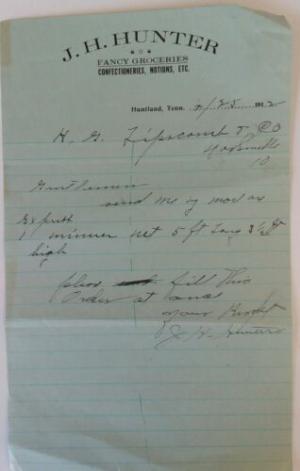 J. H. HUNTER
FANCY GROCERIES
CONFECTIONERIES, NOTIONS, ETC.
Huntland, Tenn.
H. G. Lipscomb & CO
Gentlemen
send me by mail or
Express
1 minner net 5 ft long 3 1/2 ft
high
pleas fill This
Order at once
your Respt
J. H. Hunter